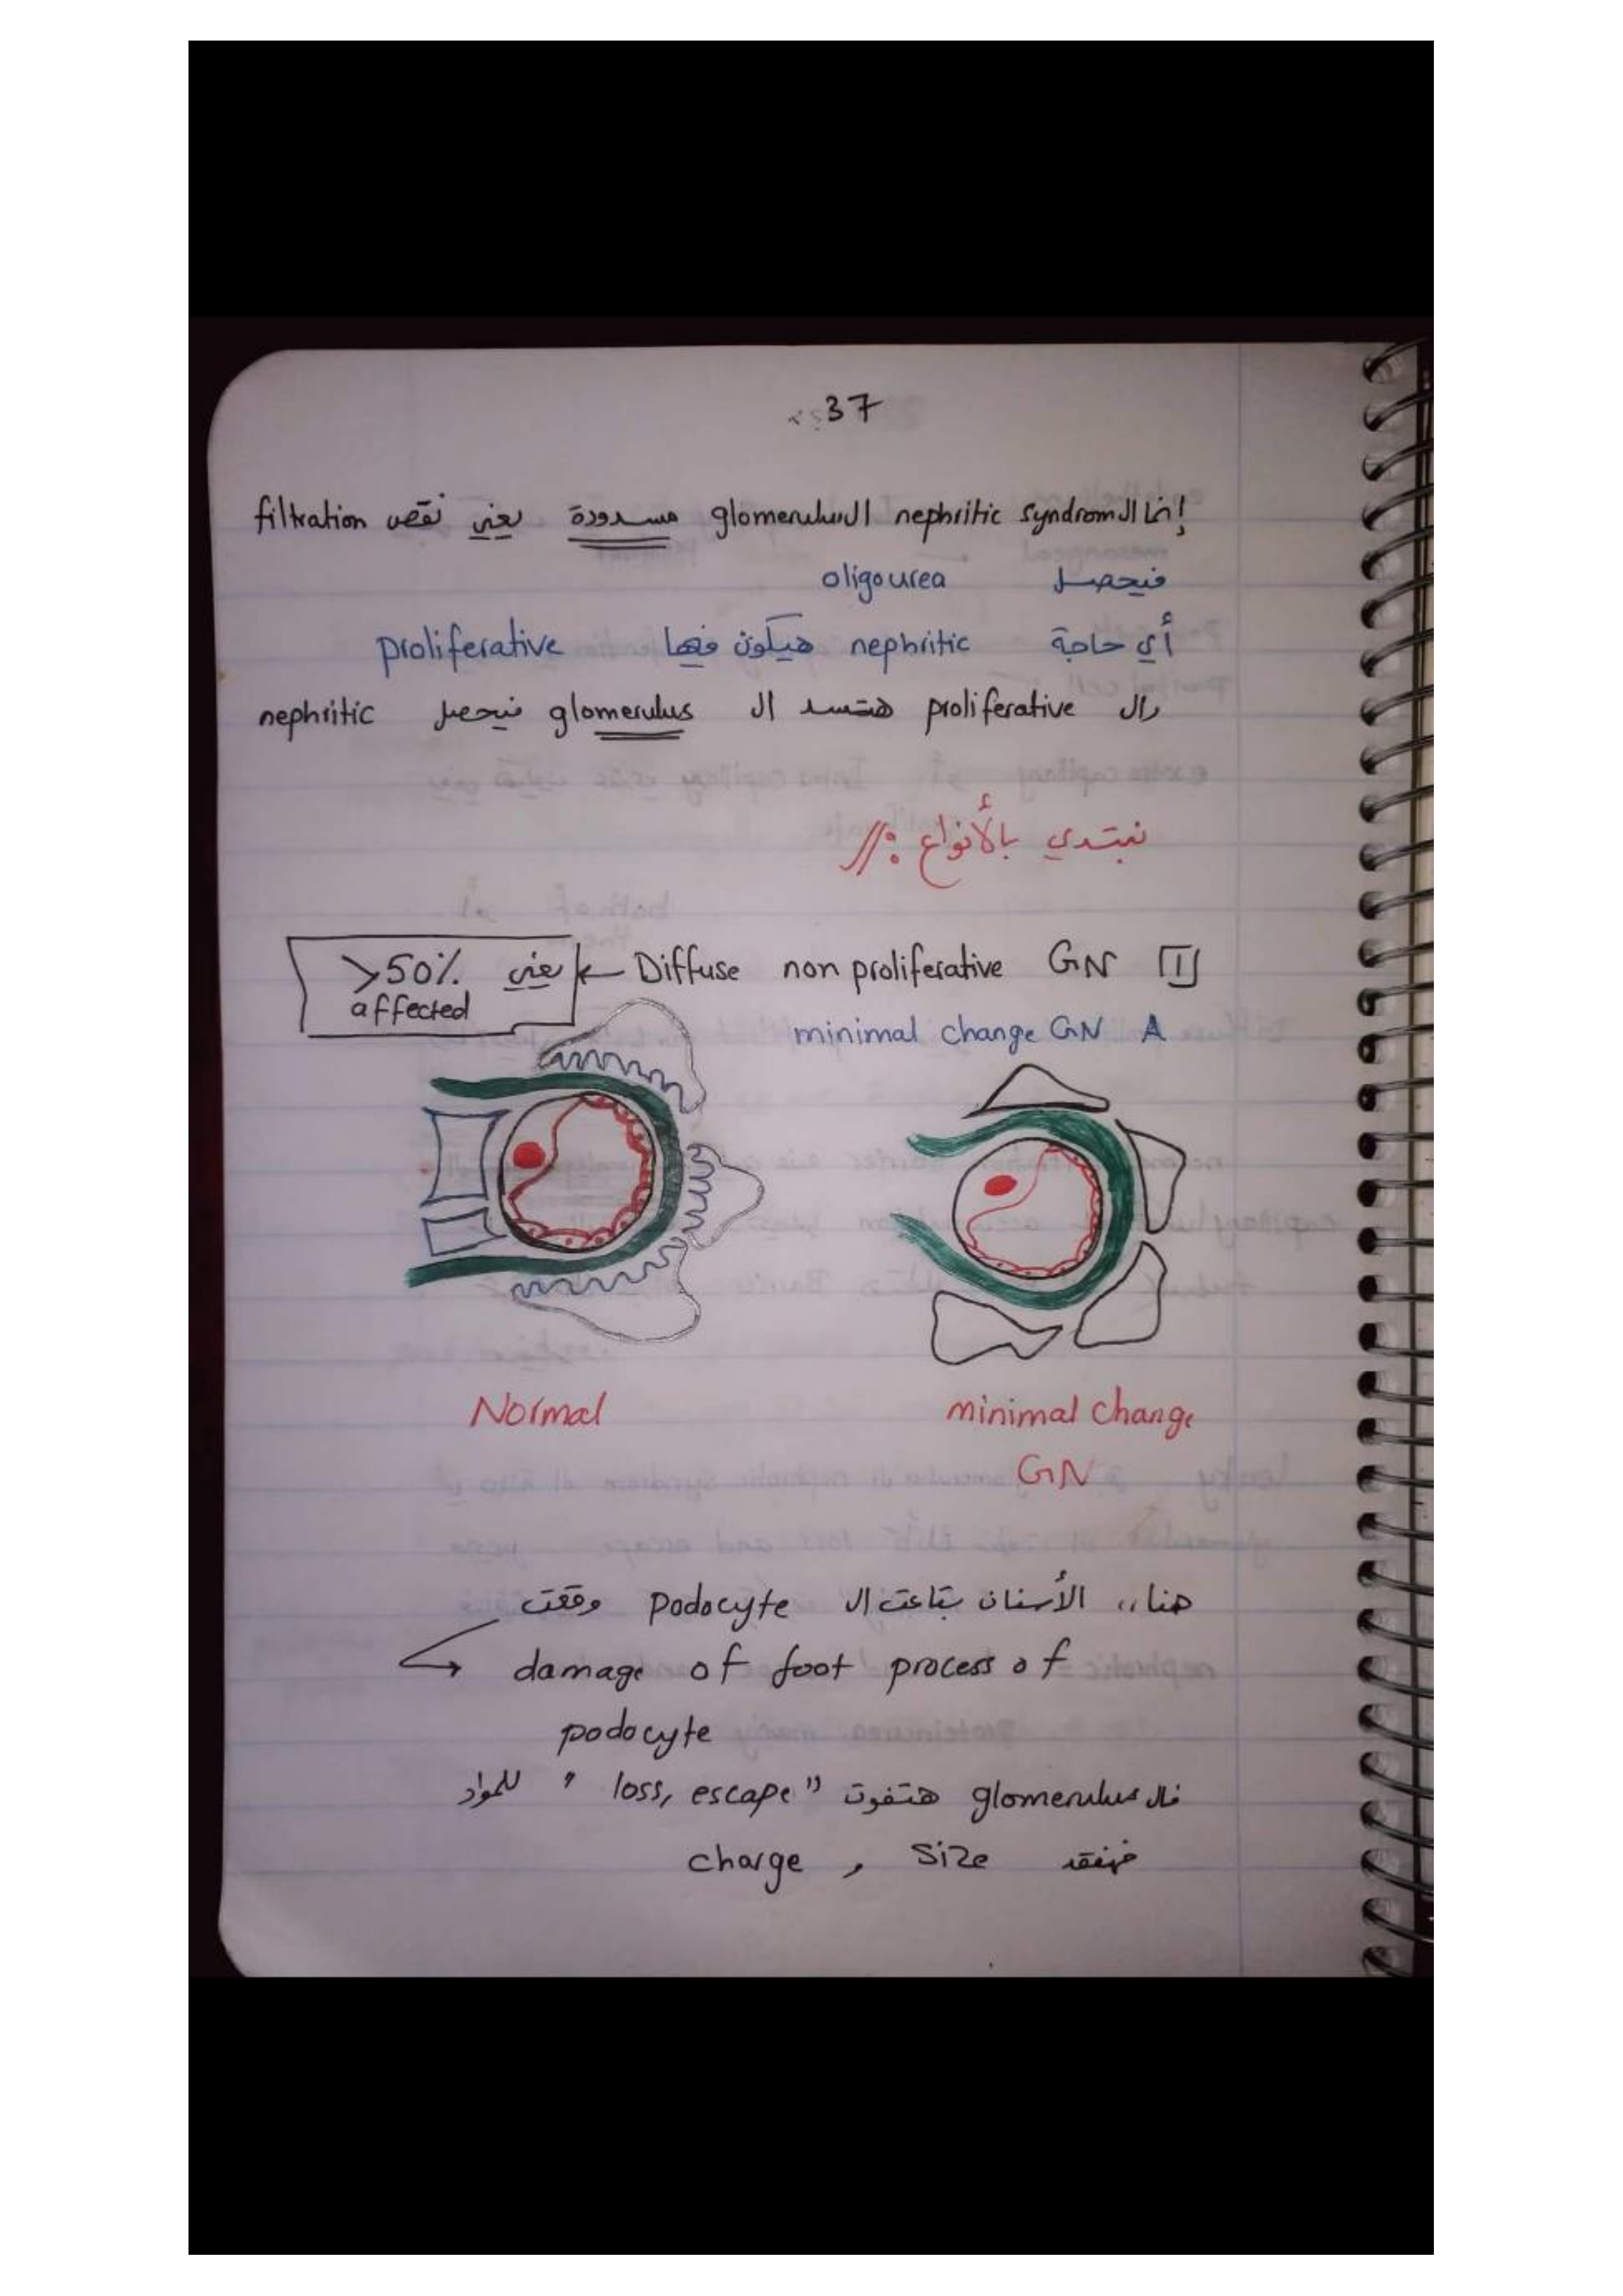 37
إنما ال nephritic syndrom ال glomerulus مسدودة يعني نقص filtration
فيحصل oligourea
أي حاجة nephritic هيكون فيها proliferative
وال proliferative هتسد ال glomerulus فيحصل nephritic
نبتدي بالأنواع://
1 Diffuse non proliferative GN ← يعني >50% affected
A minimal change GN
Normal
minimal change
GN
هنا،، الأسنان بتاعت ال podocyte وقعت
damage of foot process of
podocyte
فال glomerulus هتفوت "loss, escape" للمواد
فهنفقد size , charge